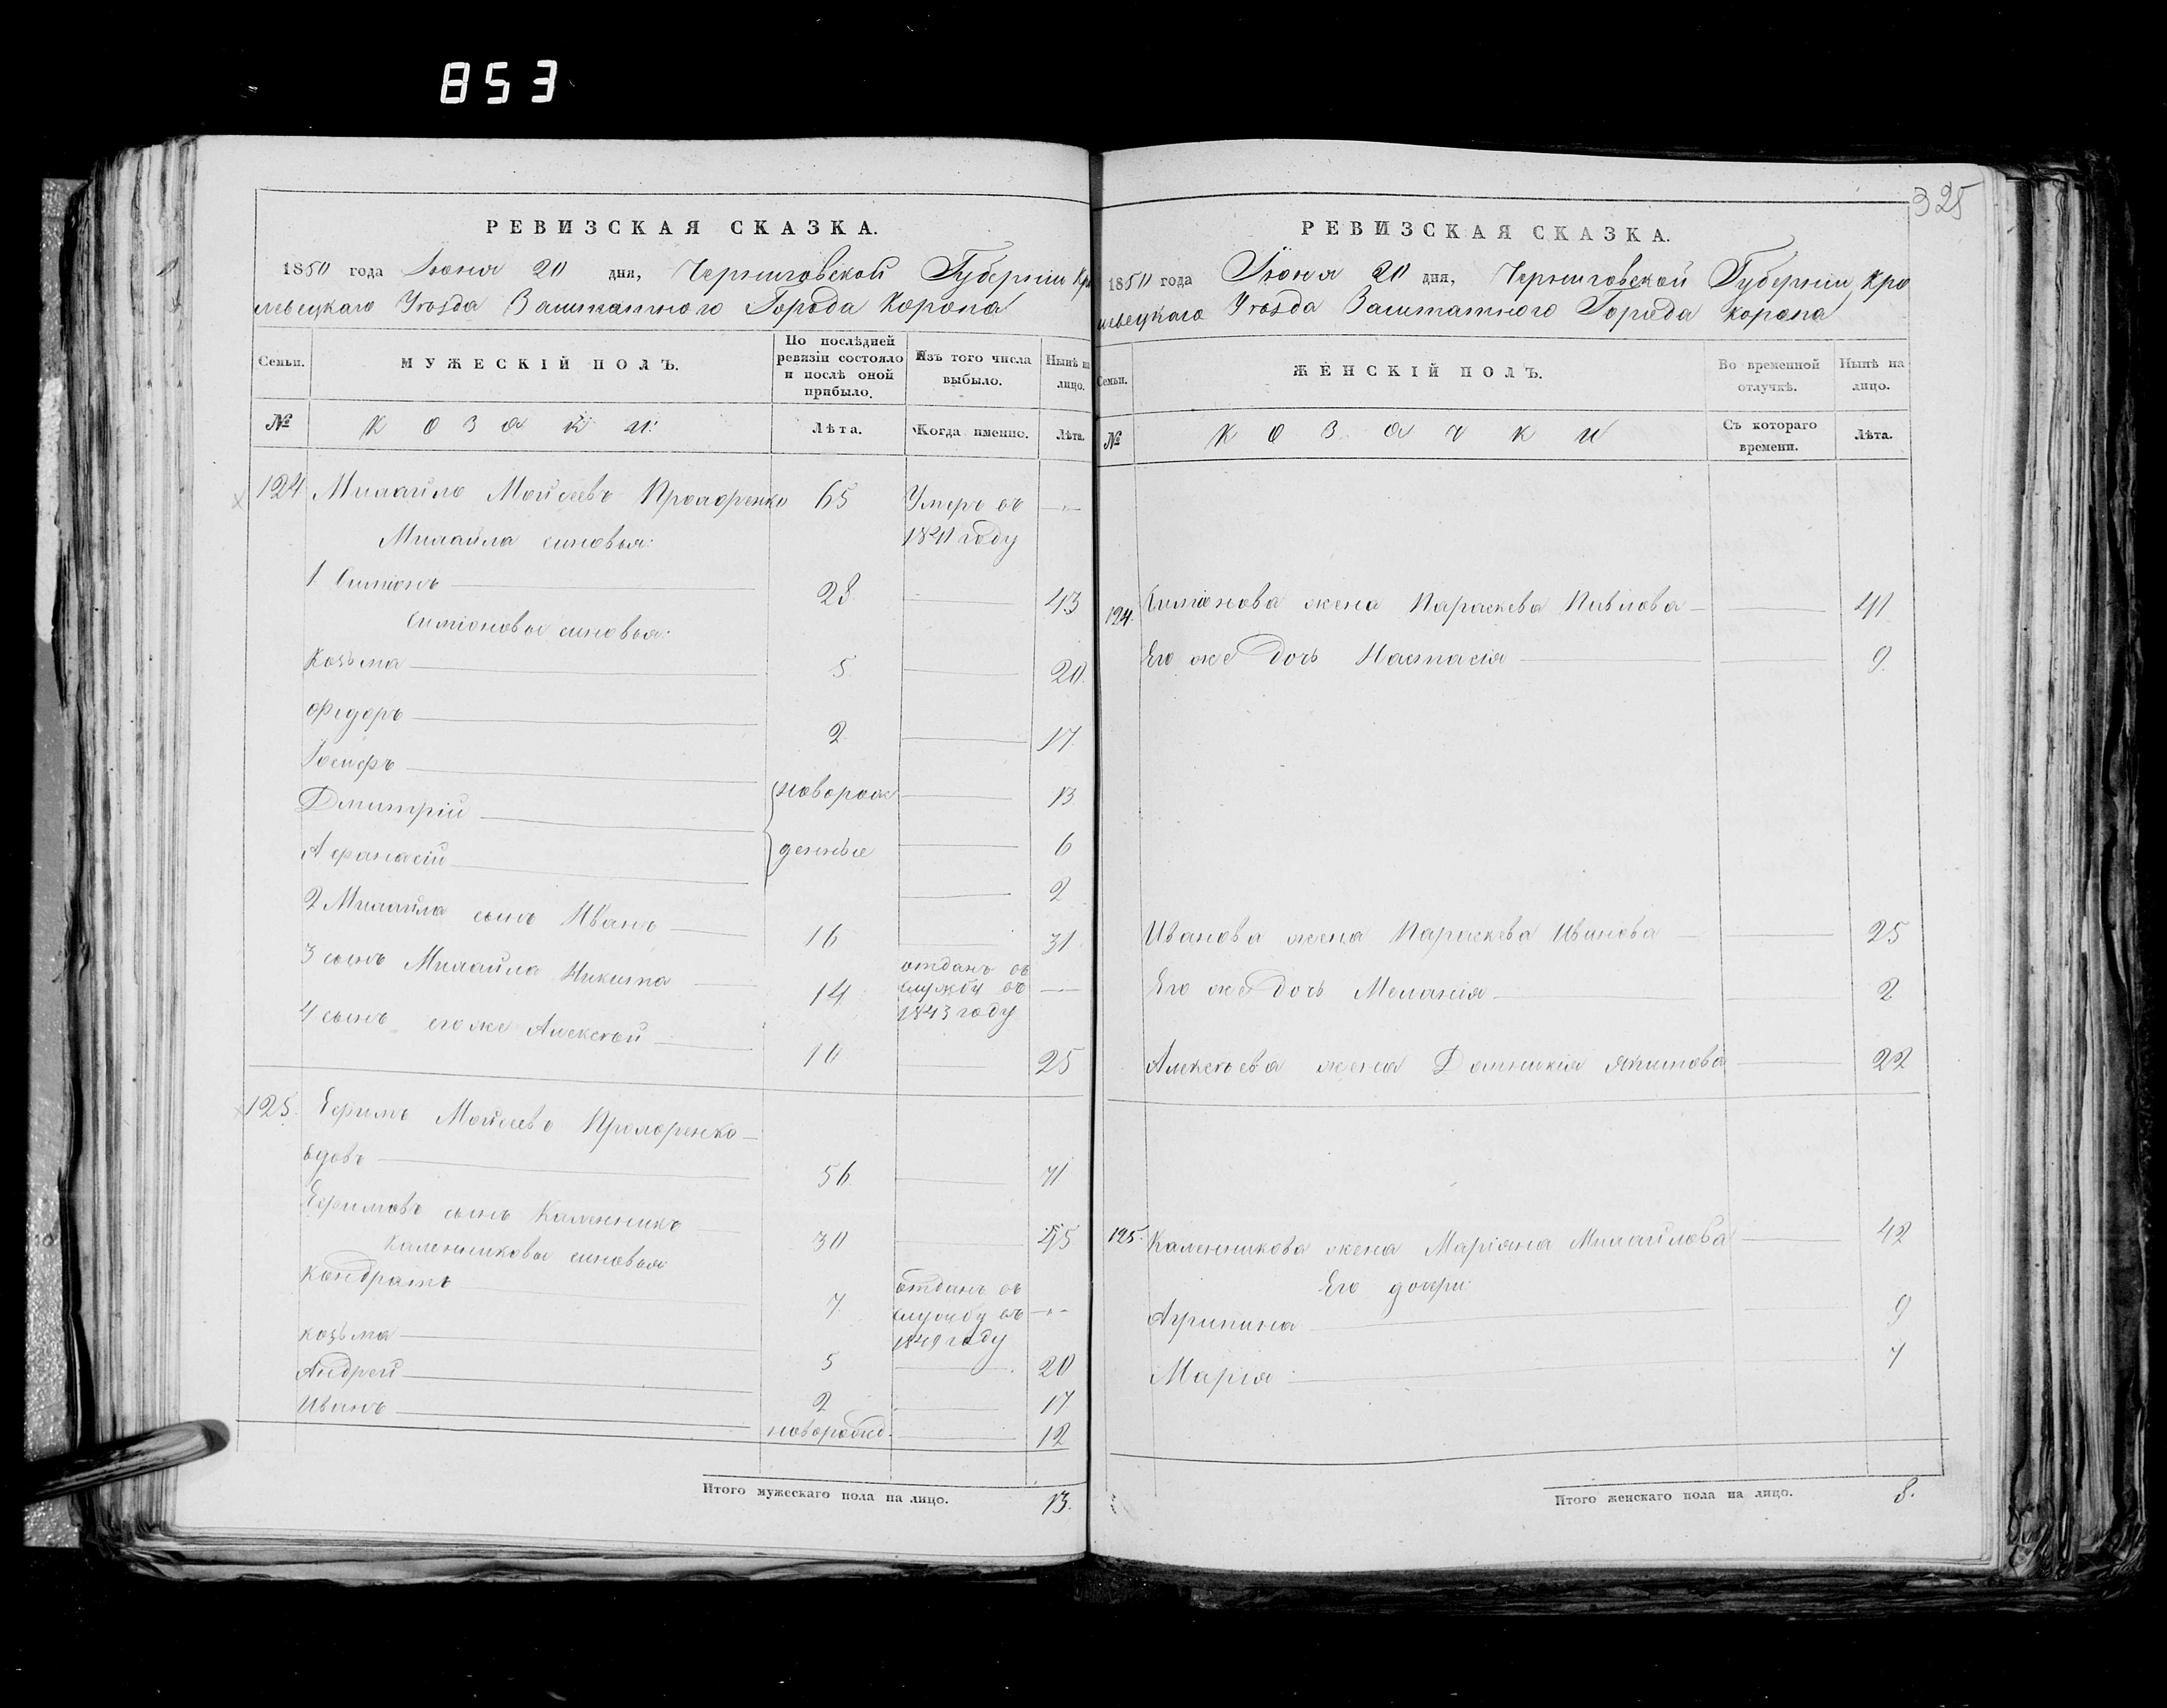 853
РЕВИЗСКАЯ СКАЗКА.
1850 года Іюня 20 дня, Черниговской Губерніи Кро
левецкаго Уѣзда Заштатнаго Города Коропа
Семьи. МУЖЕСКІЙ ПОЛЪ. По послѣдней ревизіи состояло и послѣ оной прибыло. Изъ того числа выбыло. Нынѣ на лицо.
№ Козаки: Лѣта. Когда именно. Лѣта.
124 Михайло Мойсеевъ Прохоренко 65 Умеръ въ 1840 году —"—
Михайла синовья:
1 Симіонъ 28 43
Симіоновы синовья:
Козьма 5 20.
Федоръ 2 17
Іосифъ новорож 13
Дмитрій денные 6
Афанасій 2
2 Михайла сынъ Иванъ 16 31
3 сынъ Михайла Никита 14 отданъ въ службу въ 1843 году —
4 сынъ его же Алексѣй 10 25
125. Ефимъ Мойсеевъ Прохоренко
вдовъ 56 71
Ефимовъ сынъ Каленникъ 30 45
Каленниковы синовья
Кондратъ 7 отданъ въ службу въ 1849 году —"—
Козьма 5 20
Андрей 2 17
Иванъ новорожд. 12
Итого мужескаго пола на лицо. 13.
325
РЕВИЗСКАЯ СКАЗКА.
1850 года Іюня 20 дня, Черниговской Губерніи, Кро
левецкаго Уѣзда Заштатного Города Коропа
Семьи. ЖЕНСКІЙ ПОЛЪ. Во временной отлучкѣ. Нынѣ на лицо.
№ Козачки Съ котораго времени. Лѣта.
124. Симіонова жена Параскева Павлова 41
Его же Дочь Настасія 9.
Иванова жена Параскева Иванова 25
Его же Дочь Меланія 2
Алексѣева жена Домникія Якимова 22
125. Каленникова жена Маріяна Михайлова 42
Его дочери:
Агрипина 9
Марія 7
Итого женскаго пола на лицо. 8.